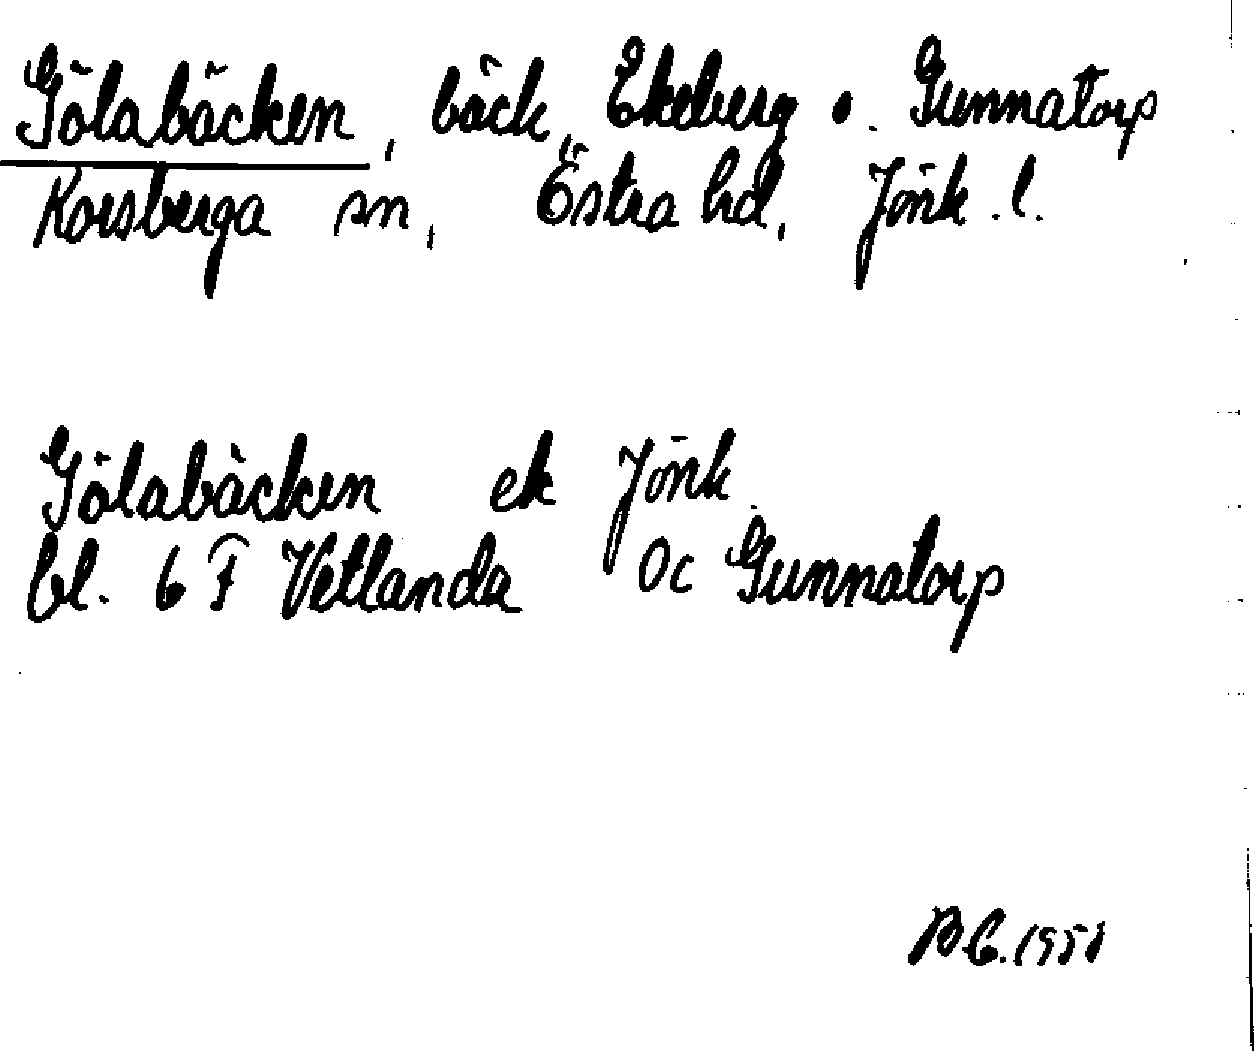 Gölabäcken, bäck, Ekeberg o. Gunnatorp
Korsberga sn, Östra hd, Jönk. l.
Gölabäcken ek Jönk.
bl. 6 F Vetlanda Oc Gunnatorp
BG. 1958